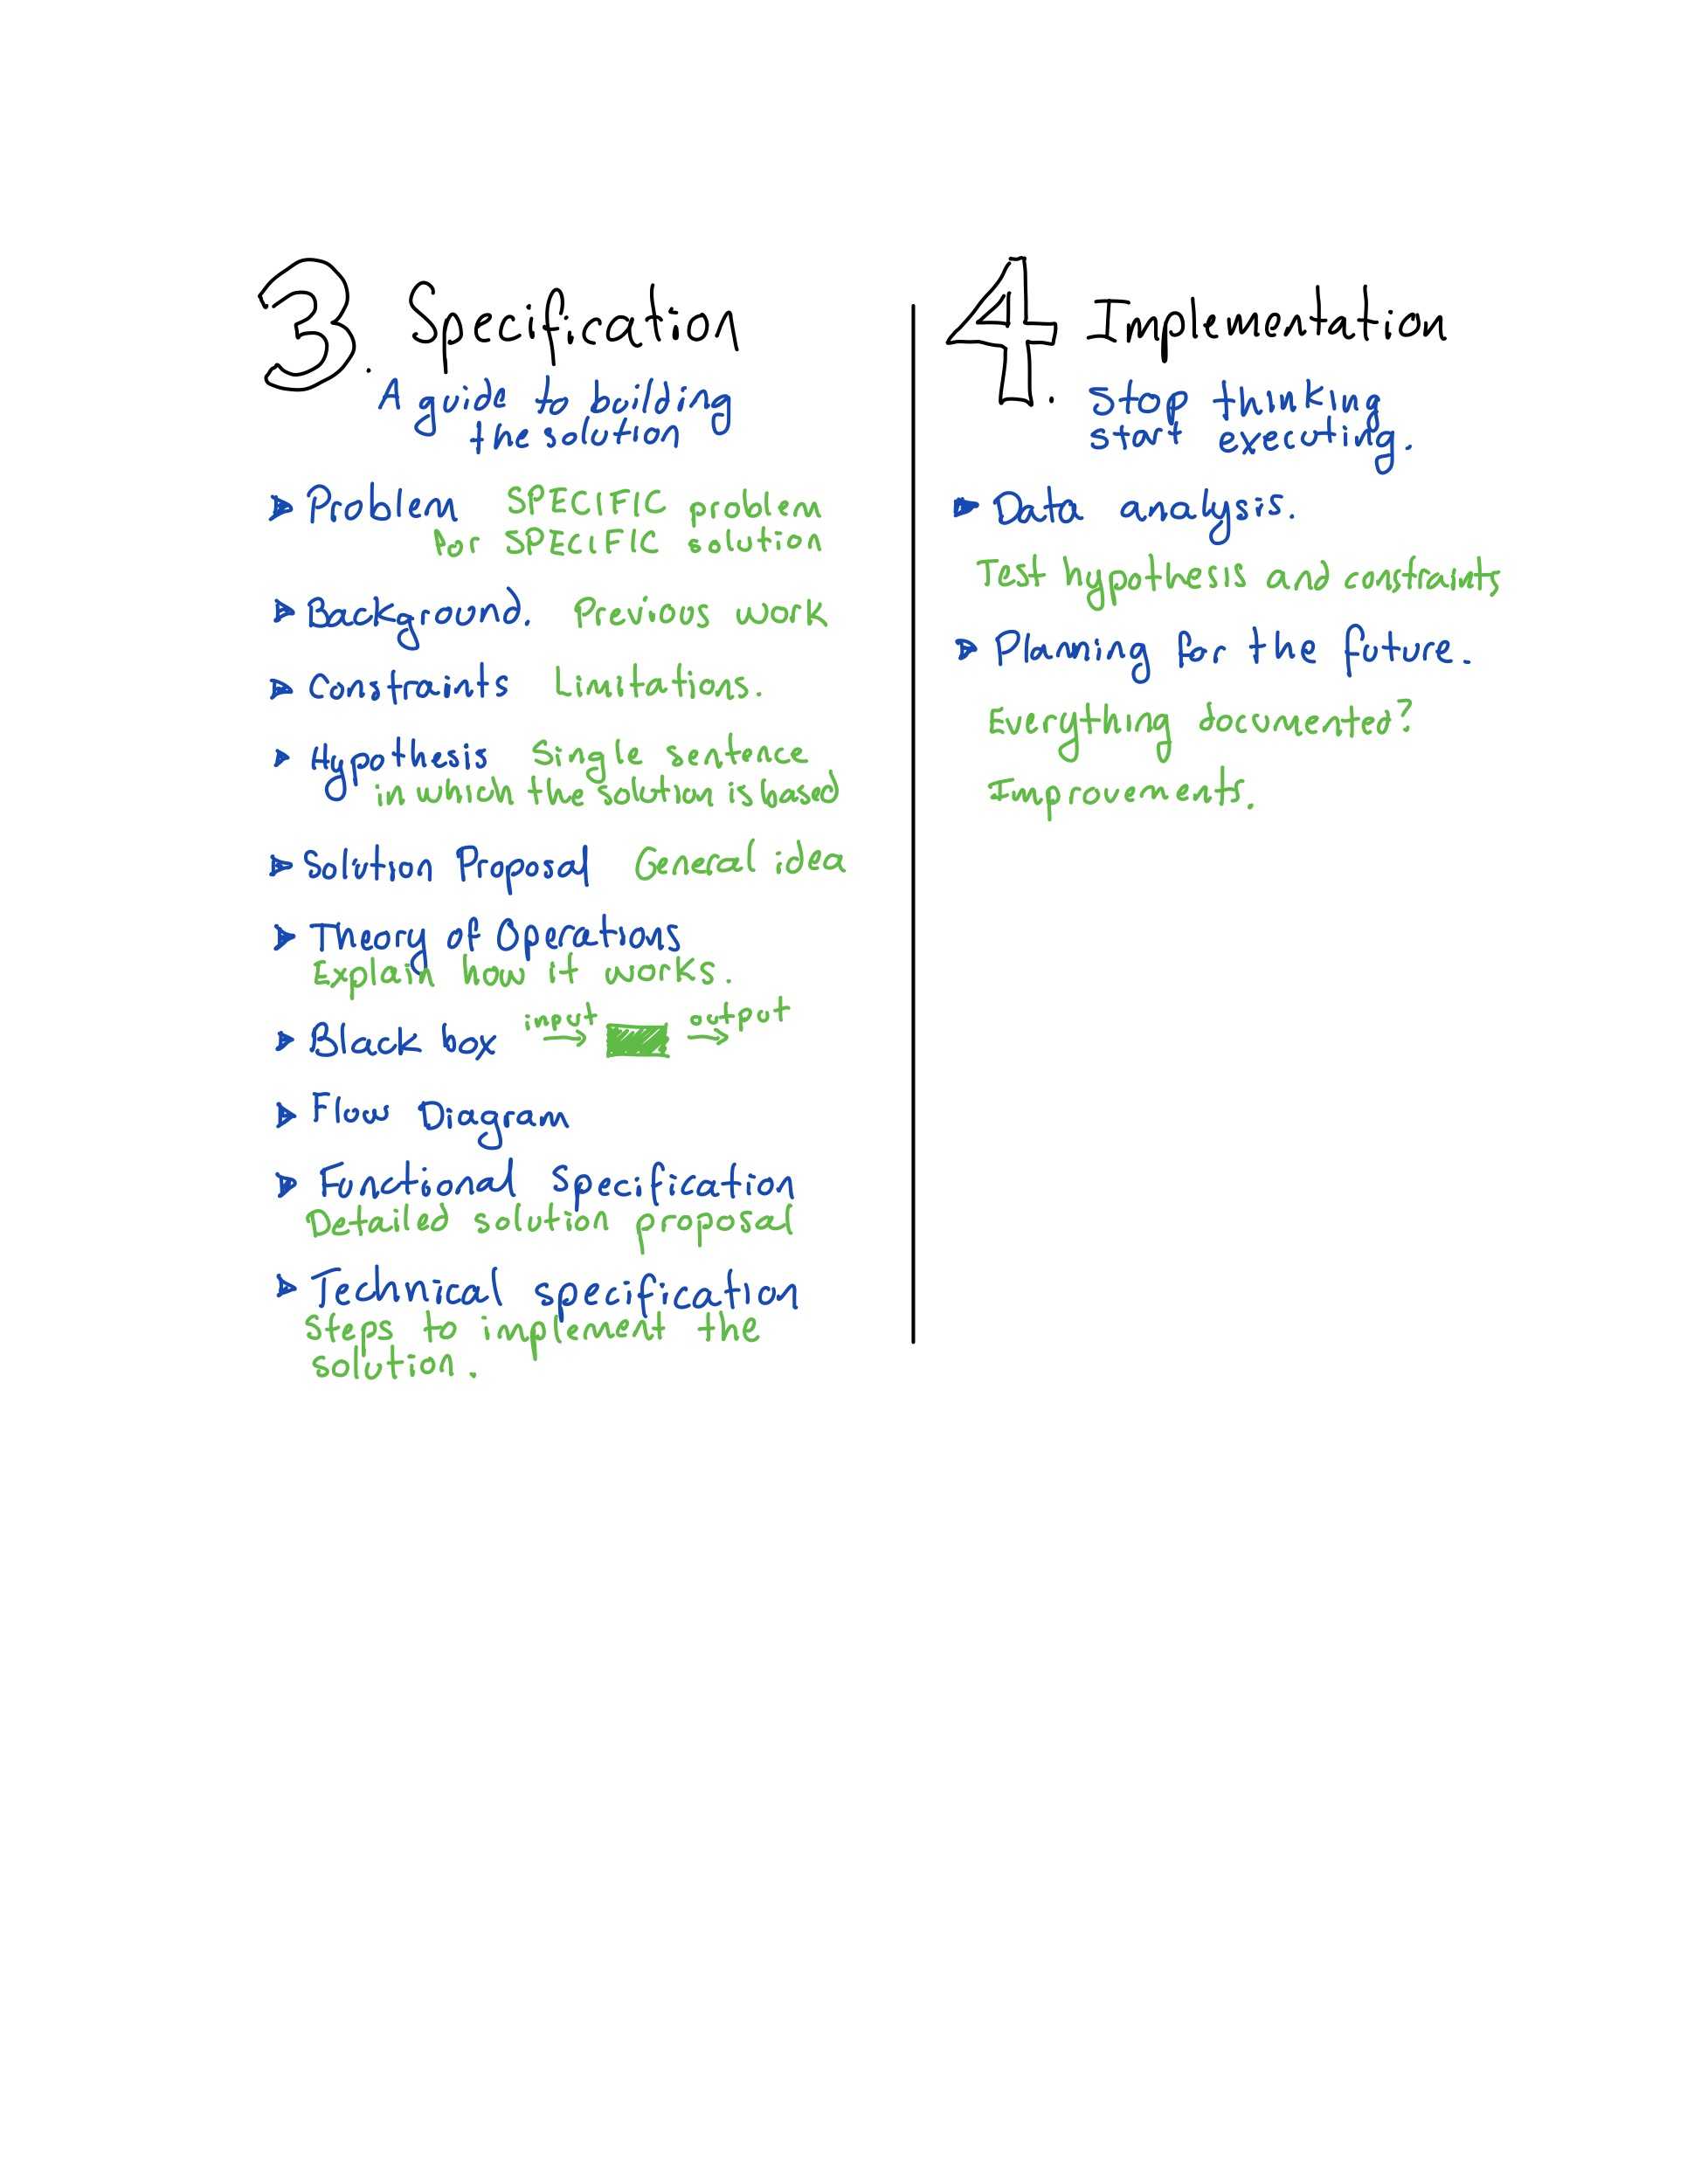 3. Specification
A guide to building
the solution
Problem SPECIFIC problem
for SPECIFIC solution
Background. Previous work
Constraints Limitations.
Hypothesis Single sentence
in which the solution is based
Solution Proposal General idea
Theory of Operations
Explain how it works.
Black box input output
Flow Diagram
Functional Specification
Detailed solution proposal
Technical specification
Steps to implement the
solution.
4. Implementation
Stop thinking
start executing.
Data analysis.
Test hypothesis and constraints
Planning for the future.
Everything documented?
Improvements.